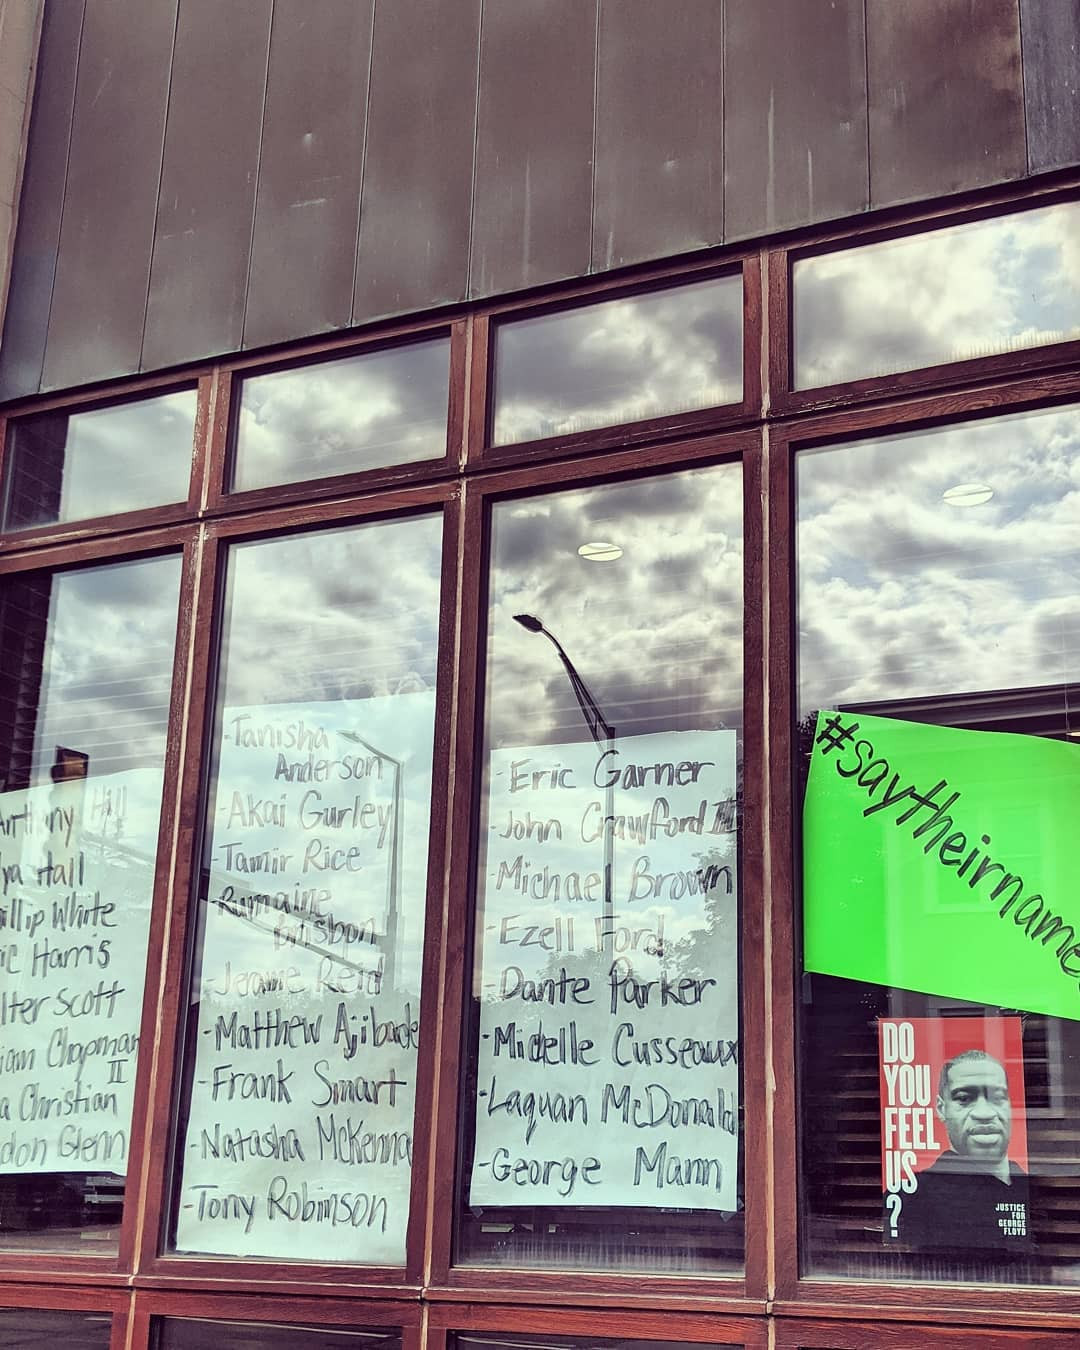 Hill
Hall
White
Harris
Scott
Chapman
II
Christian
Glenn
-Tanisha
Anderson
-Akai Gurley
-Tamir Rice
-Rumaine
Brisbon
-Jerame Reid
-Matthew Ajibade
-Frank Smart
-Natasha McKenna
-Tony Robinson
-Eric Garner
-John Crawford III
-Michael Brown
-Ezell Ford
-Dante Parker
-Michelle Cusseaux
-Laquan McDonald
-George Mann
#saytheirname
DO
YOU
FEEL
US
?
JUSTICE
FOR
GEORGE
FLOYD